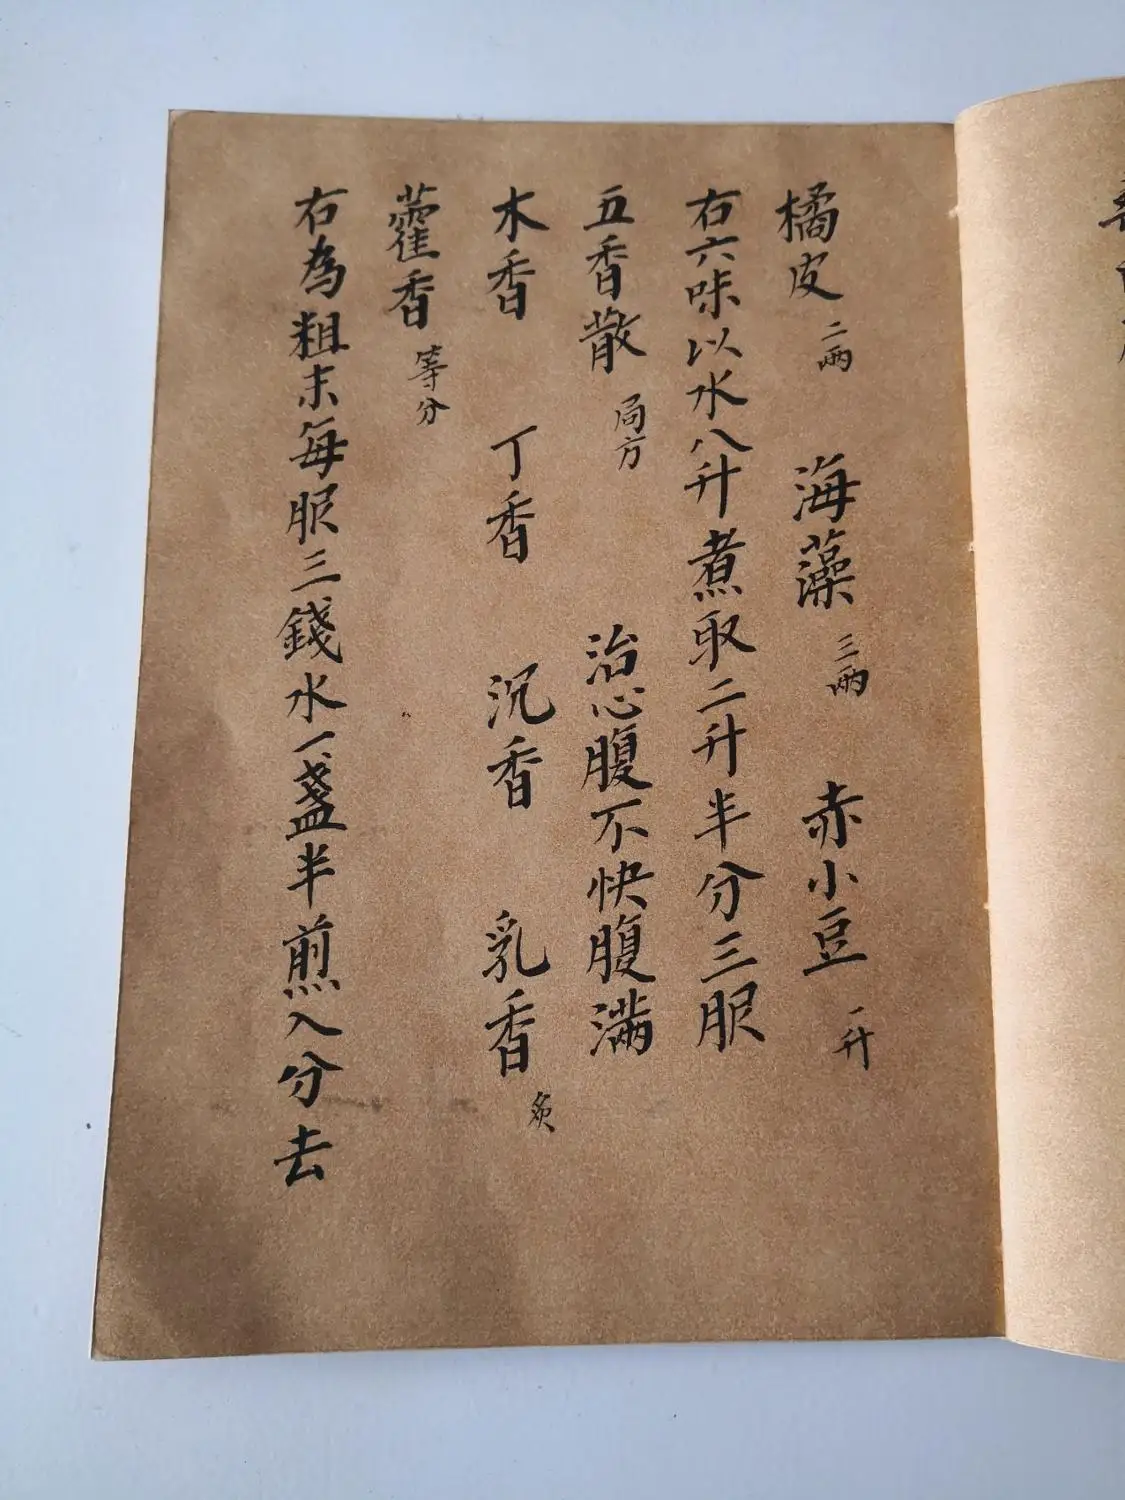 橘皮 二兩 海藻 三兩 赤小豆 一升
右六味以水八升煮取二升半分三服
五香散 局方 治心腹不快腹滿
木香 丁香 沉香 乳香 炙
藿香 等分
右為粗末每服三錢水一盞半煎入分去